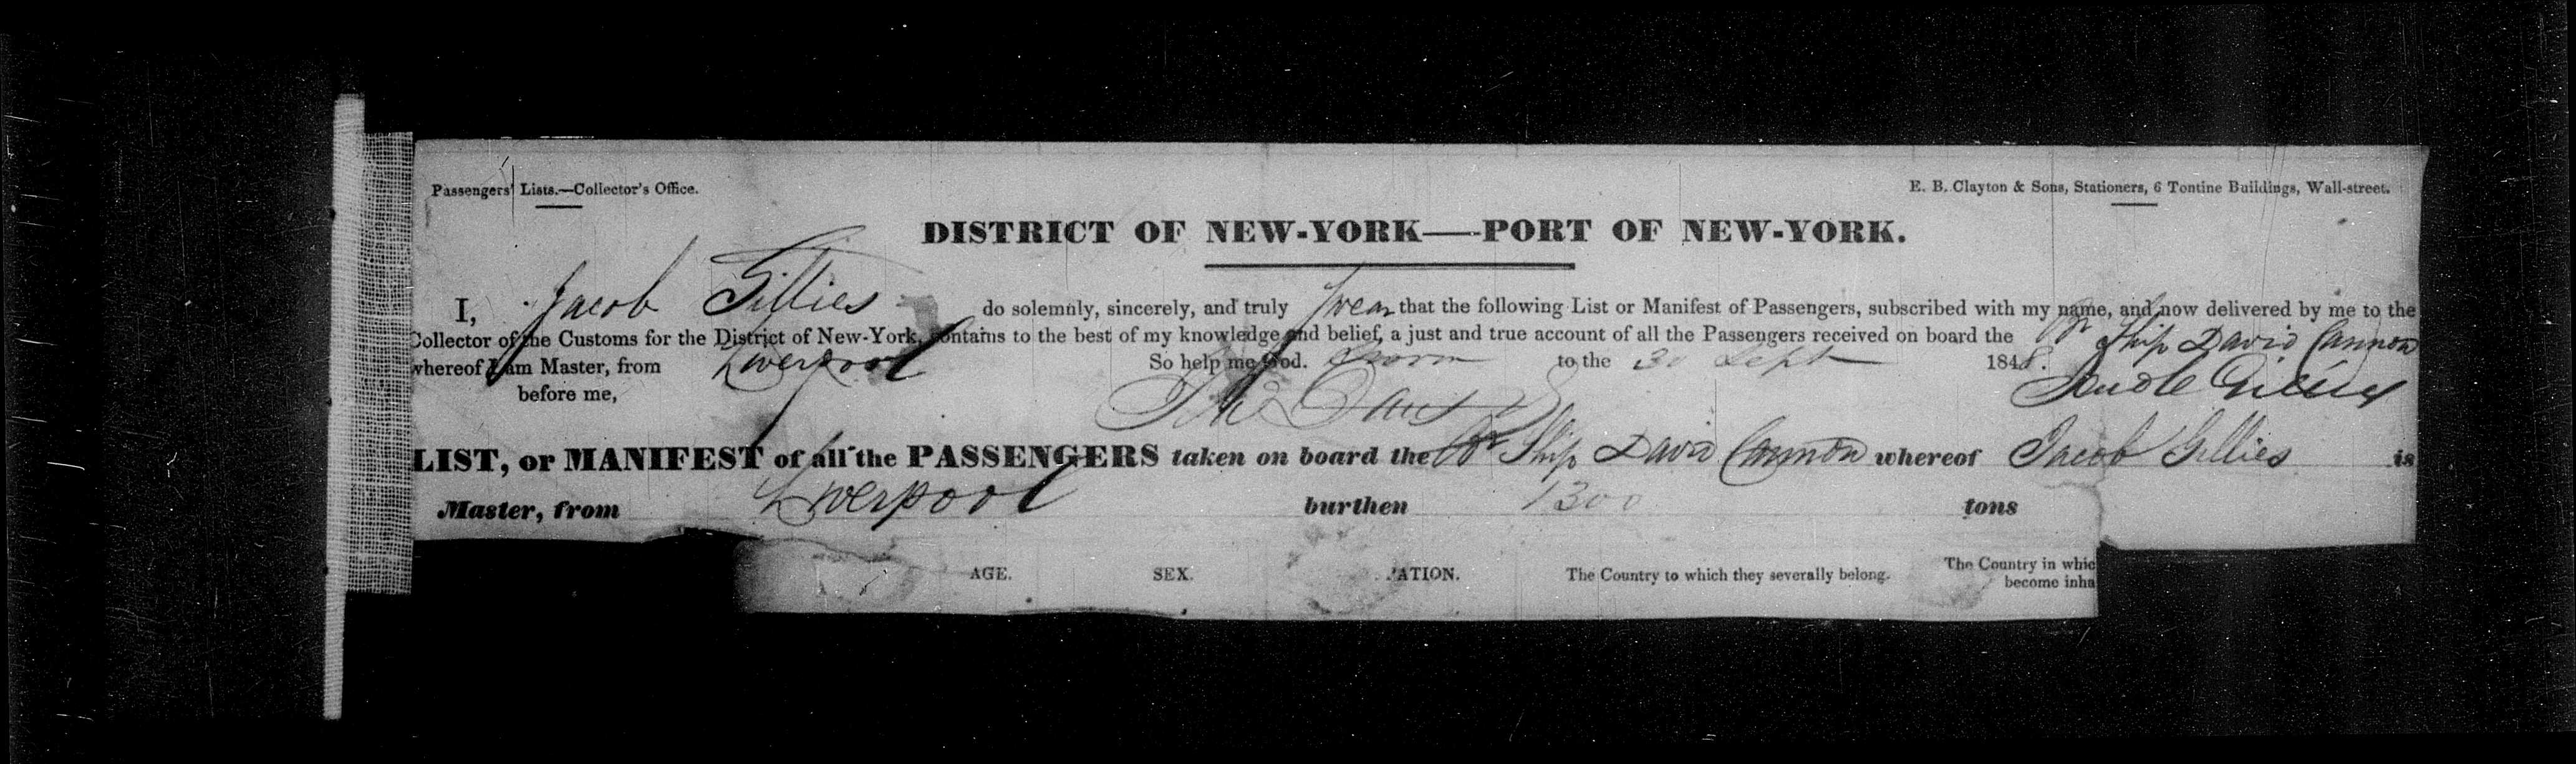 Passengers' Lists.—Collector's Office.
E. B. Clayton & Sons, Stationers, 6 Tontine Buildings, Wall-street.
DISTRICT OF NEW-YORK—PORT OF NEW-YORK.
I, Jacob Gillies do solemnly, sincerely, and truly swear that the following List or Manifest of Passengers, subscribed with my name, and now delivered by me to the
Collector of the Customs for the District of New-York, contains to the best of my knowledge and belief, a just and true account of all the Passengers received on board the Br Ship David Cannon
whereof I am Master, from Liverpool So help me God. Sworn to the 30 Sept 1848.
before me,
LIST, or MANIFEST of all the PASSENGERS taken on board the Br Ship David Cannon whereof Jacob Gillies is
Master, from Liverpool burthen 1300 tons
AGE. SEX. PATION. The Country to which they severally belong. The Country in whic
become inha